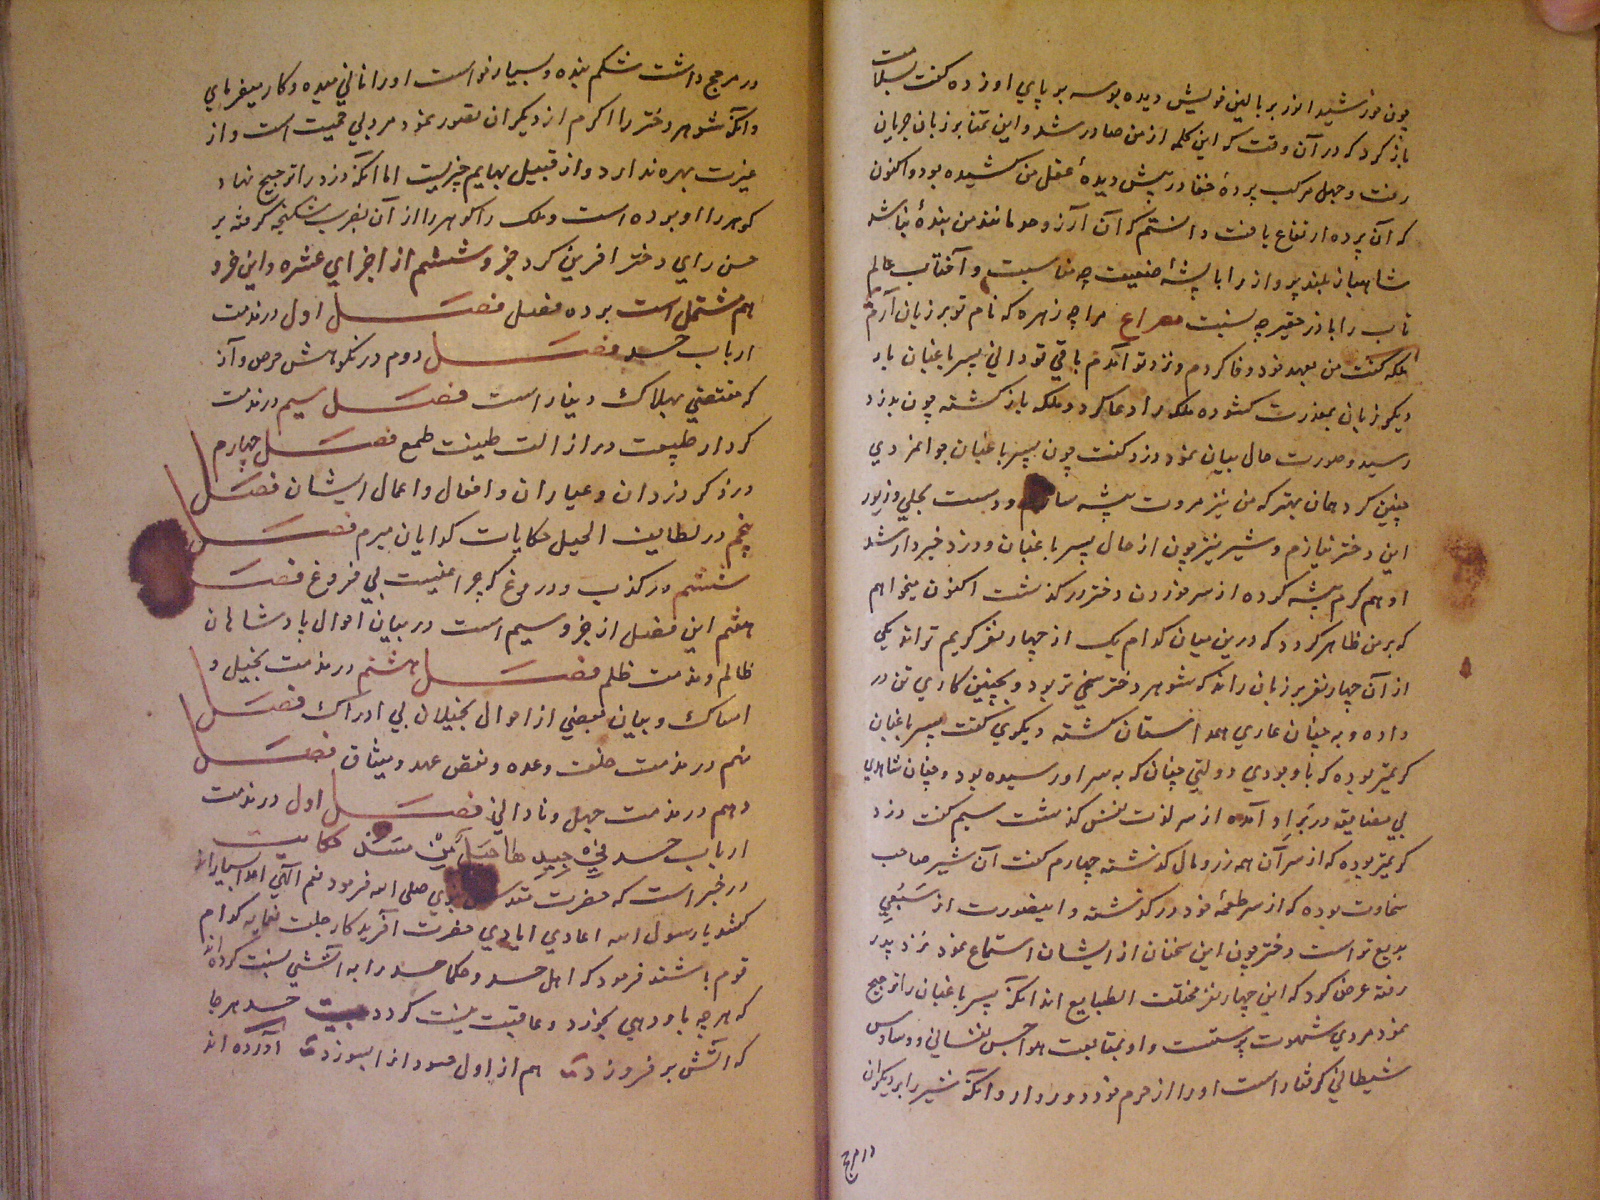 چون خورشید انور بر بالین خویش دیده بوسه بر پای او زده گفت بسلامت
باز گرد که در آن وقت که این کلمه از من صادر شد و این تمنا بر زبان جریان
رفت و جهل مرکب پردهٔ خفا در پیش دیدهٔ عقل من کشیده بود و اکنون
که آن پرده ارتفاع یافت دانستم که آن آرزو حد مانند من بندهٔ نباشد
شاهباز بلند پرواز را با پشهٔ ضعیف چه مناسبت و آفتاب عالم
تاب را با ذره حقیر چه نسبت مصراع مرا چه زهره که نام تو بر زبان آرم
ملکه گفت من بعهد خود وفا کردم و نزد تو آمدم باقی تو دانی پسر باغبان بار
دیگر زبان بمعذرت گشوده ملکه را دعا کرد و ملکه باز گشته چون بدزد
رسید و صورت حال بیان نمود دزد گفت چون پسر باغبان جوانمردی
چنین کرد همان بهتر که من نیز مروت پیشه سازم و دست بحلی و زیور
این دختر نیازم و شیر نیز چون از حال پسر باغبان و دزد خبردار شد
او هم کرم پیشه کرده از سر خوردن دختر در گذشت اکنون میخواهم
که بر من ظاهر گردد که درین میان کدام یک از چهار نفر کریم تر اند یکی
از آن چهار نفر بر زبان راند که شوهر دختر سخی تر بود و بچنین کاری تن در
داده و به چنان عاری همداستان گشته دیگری گفت پسر باغبان
کریمتر بوده که با وجودی دولتی چنان که به سر او رسیده بود و چنان شاهدی
بی مضایقه در بر او آمده از سر لذت نفس گذشت سیم گفت دزد
کریمتر بوده که از سر آن همه زر و مال گذشته چهارم گفت آن شیر صاحب
سخاوت بوده که از سر طعمهٔ خود در گذشته و اینصورت از سبعی
بدیع تر است دختر چون این سخنان از ایشان استماع نمود نزد پدر
رفته عرض کرد که این چهار نفر مختلف الطبایع اند آنکه پسر باغبان را ترجیح
نمود مردی شهوت پرستست و او بمتابعت هواجس نفسانی و وساوس
شیطانی گرفتار است او را از حرم خود دور دار و آنکه شیر را بر دیگران
در مرجح داشت شکم بنده و بسیار خوار است او را نانی میده و کار میفرمای
و آنکه شوهر دختر را اکرم از دیگران تصور نمود مرد بی حمیت است و از
غیرت بهره ندارد و از قبیل بهایم چیزیست اما آنکه دزد را ترجیح نهاد
گوهر را او برده است و ملک را گوهر را از آن بضرب شکنجه گرفته بر
حسن رای دختر آفرین کرد جزو ششم از اجزای عشره و این جزو
هم مشتمل است بر ده فصل فصل اول در مذمت
ارباب حسد فصل دوم در نکوهش حرص و آز
که مقتضی بهلاک دینار است فصل سیم در مذمت
کردار طبیعت در ازالت طینت طمع فصل چهارم
در ذکر دزدان و عیاران و افعال و اعمال ایشان فصل
پنجم در لطایف الحیل حکایات گدایان مبرم فصل
ششم در کذب و دروغ که چراغیست بی فروغ فصل
هفتم این فصل از جزو سیم است در بیان احوال پادشاهان
ظالم و مذمت ظلم فصل هشتم در مذمت بخیل و
امساک و بیان بعضی از احوال بخیلان بی ادراک فصل
نهم در مذمت خلف وعده و نقض عهد و میثاق فصل
دهم در مذمت جهل و نادانی فصل اول در مذمت
ارباب حسد فی جیدها حبل من مسد حکایت
در خبر است که حضرت نبوی صلی الله فرمود
گفتند یا رسول الله اعادی ایادی حضرت آفریدکار جلت نعمایه کدام
قوم باشند فرمود که اهل حسد و حکما حسد را به آتشی نسبت کرده اند
که هر چه باو دهی بخورد و عاقبت نیست گردد بیت حسد هر جا
که آتش بر فروزد هم از اول حسود انرا بسوزد آورده اند
در مرجح